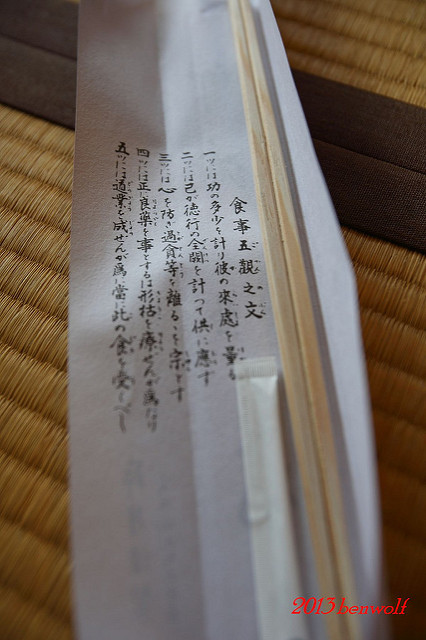 食事五観之文
一ツには功の多少を計り彼の來處を量る
二ツには己が徳行の全闕を計つて供に應ず
三ツには心を防ぎ過貪等を離るゝを宗とす
四ツには正に良薬を事とするは形枯を療ぜんが為なり
五ツには道業を成ぜんが為當に此の食を受くべし
2013 benwolf